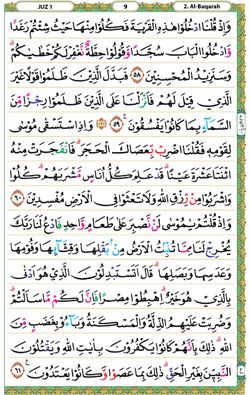 JUZ 1 9 2. Al-Baqarah
وَإِذْ قُلْنَا ادْخُلُوا هَٰذِهِ الْقَرْيَةَ فَكُلُوا مِنْهَا حَيْثُ شِئْتُمْ رَغَدًا
وَادْخُلُوا الْبَابَ سُجَّدًا وَقُولُوا حِطَّةٌ نَغْفِرْ لَكُمْ خَطَايَاكُمْ ۚ
وَسَنَزِيدُ الْمُحْسِنِينَ ٥٨ فَبَدَّلَ الَّذِينَ ظَلَمُوا قَوْلًا غَيْرَ
الَّذِي قِيلَ لَهُمْ فَأَنْزَلْنَا عَلَى الَّذِينَ ظَلَمُوا رِجْزًا مِنَ
السَّمَاءِ بِمَا كَانُوا يَفْسُقُونَ ٥٩ وَإِذِ اسْتَسْقَىٰ مُوسَىٰ
لِقَوْمِهِ فَقُلْنَا اضْرِبْ بِعَصَاكَ الْحَجَرَ ۖ فَانْفَجَرَتْ مِنْهُ
اثْنَتَا عَشْرَةَ عَيْنًا ۖ قَدْ عَلِمَ كُلُّ أُنَاسٍ مَشْرَبَهُمْ ۖ كُلُوا
وَاشْرَبُوا مِنْ رِزْقِ اللَّهِ وَلَا تَعْثَوْا فِي الْأَرْضِ مُفْسِدِينَ ٦٠
وَإِذْ قُلْتُمْ يَا مُوسَىٰ لَنْ نَصْبِرَ عَلَىٰ طَعَامٍ وَاحِدٍ فَادْعُ لَنَا رَبَّكَ
يُخْرِجْ لَنَا مِمَّا تُنْبِتُ الْأَرْضُ مِنْ بَقْلِهَا وَقِثَّائِهَا وَفُومِهَا
وَعَدَسِهَا وَبَصَلِهَا ۖ قَالَ أَتَسْتَبْدِلُونَ الَّذِي هُوَ أَدْنَىٰ
بِالَّذِي هُوَ خَيْرٌ ۚ اهْبِطُوا مِصْرًا فَإِنَّ لَكُمْ مَا سَأَلْتُمْ ۗ
وَضُرِبَتْ عَلَيْهِمُ الذِّلَّةُ وَالْمَسْكَنَةُ وَبَاءُوا بِغَضَبٍ مِنَ
اللَّهِ ۗ ذَٰلِكَ بِأَنَّهُمْ كَانُوا يَكْفُرُونَ بِآيَاتِ اللَّهِ وَيَقْتُلُونَ
النَّبِيِّينَ بِغَيْرِ الْحَقِّ ۗ ذَٰلِكَ بِمَا عَصَوْا وَكَانُوا يَعْتَدُونَ ٦١